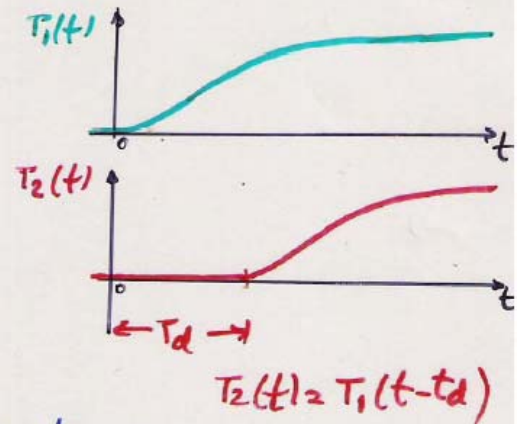 T₁(t)
0
t
T₂(t)
0
t
← Td →
T₂(t) = T₁(t-td)